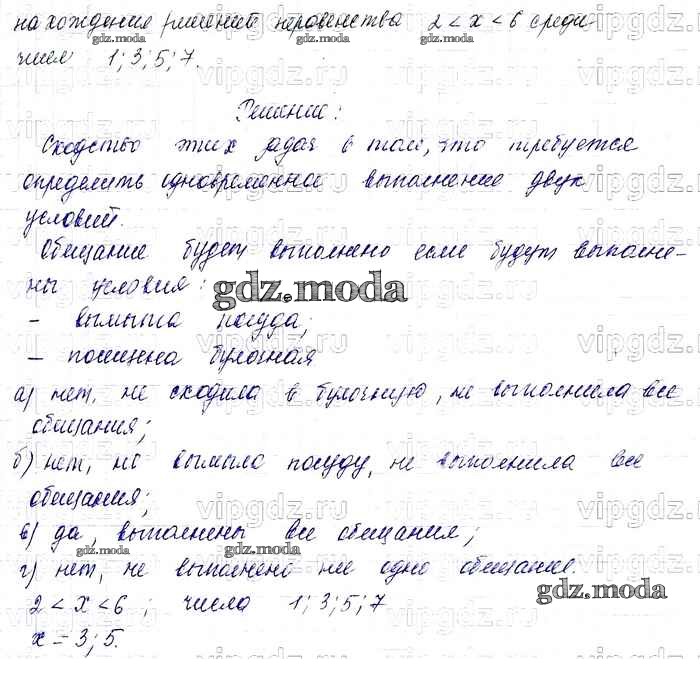 нахождения решений неравенства 2 < x < 6 среди
чисел 1; 3; 5; 7.
Решение:
Сходство этих задач в том, что требуется
определить одновременное выполнение двух
условий.
Обещание будет выполнено если будут выполне-
ны условия:
- вымыта посуда;
- посещена булочная
а) нет, не сходила в булочную, не выполнила все
обещания;
б) нет, не вымыла посуду, не выполнила все
обещания;
в) да, выполнены все обещания;
г) нет, не выполнено ни одно обещание.
2 < x < 6 ; числа 1; 3; 5; 7
x = 3; 5.
gdz.moda
vipgdz.ru